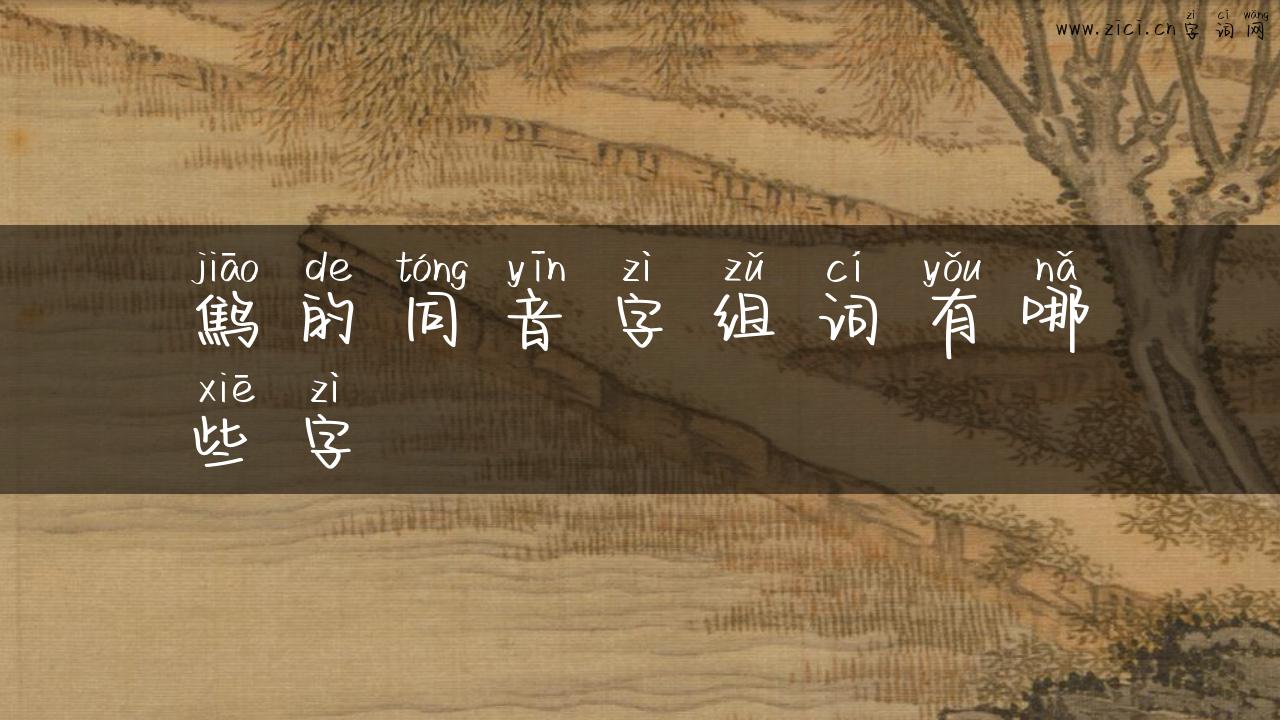 zì cí wǎng
www.zici.cn字 词 网
jiāo de tóng yīn zì zǔ cí yǒu nǎ
鹪 的 同 音 字 组 词 有 哪
xiē zì
些 字